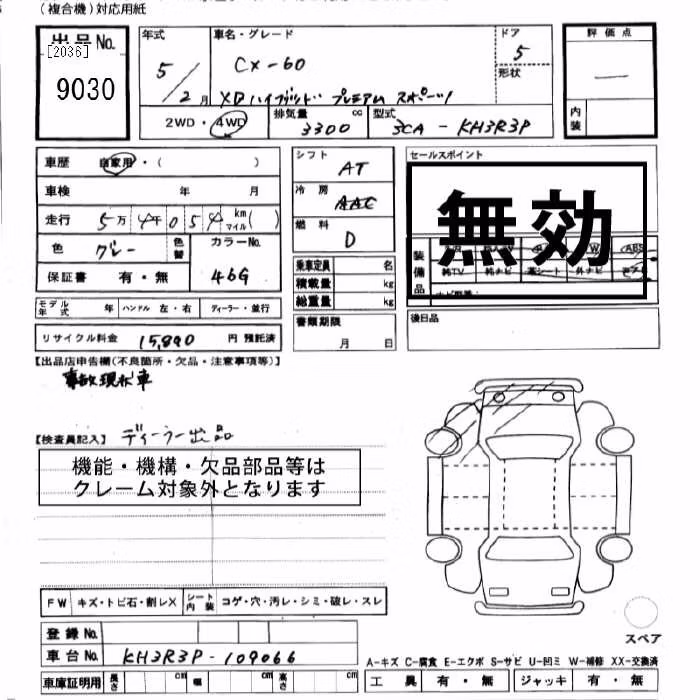 (複合機)対応用紙
出品No.
[2036]
9030
年式
5/2月
車名・グレード
CX-60
XDハイブリッド プレミアム スポーツ
ドア
5
形状
評価点
—
内装
2WD・4WD
排気量 3300 cc
型式 3CA-KH3R3P
車歴 自家用・( )
車検 年 月
走行 5万4千054 km マイル( )
色 グレー 色替
カラーNo. 46G
保証書 有・無
モデル年式 年 ハンドル 左・右 ディーラー・並行
リサイクル料金 15,890 円 預託済
シフト AT
冷房 AAC
燃料 D
乗車定員 名
積載量 kg
総重量 kg
書類期限
月 日
セールスポイント
無効
装備品
ABS
純TV 純ナビ 革シート 外ナビ エアB
後日品
【出品店申告欄(不良箇所・欠品・注意事項等)】
事故現状車
【検査員記入】 ディーラー出品
機能・機構・欠品部品等は
クレーム対象外となります
FW キズ・トビ石・割レX シート内装 コゲ・穴・汚レ・シミ・破レ・スレ
登録No.
車台No. KH3R3P-109066
車庫証明用 長さ cm 幅 cm 高さ cm
スペア
A-キズ C-腐食 E-エクボ S-サビ U-凹ミ W-補修 XX-交換済
工具 有・無 ジャッキ 有・無